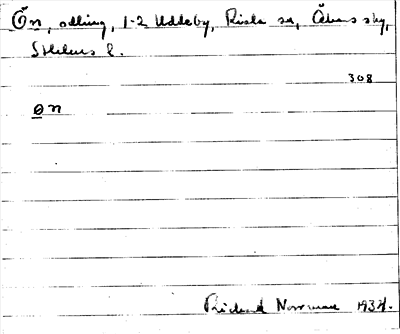 Ön, odling, 1-2 Uddeby, Risla sn, Åkers sbg,
Sthlms l.
308
ɵn
Richard Norrman 1934.